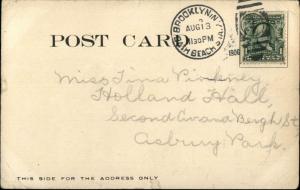 BROOKLYN, N.Y.
AUG 13
11 30 PM
BATH BEACH STA.
1906
POST CARD
Miss Tina Pinkney
Holland Hall,
Second Ave and Bergh St
Asbury Park.
THIS SIDE FOR THE ADDRESS ONLY